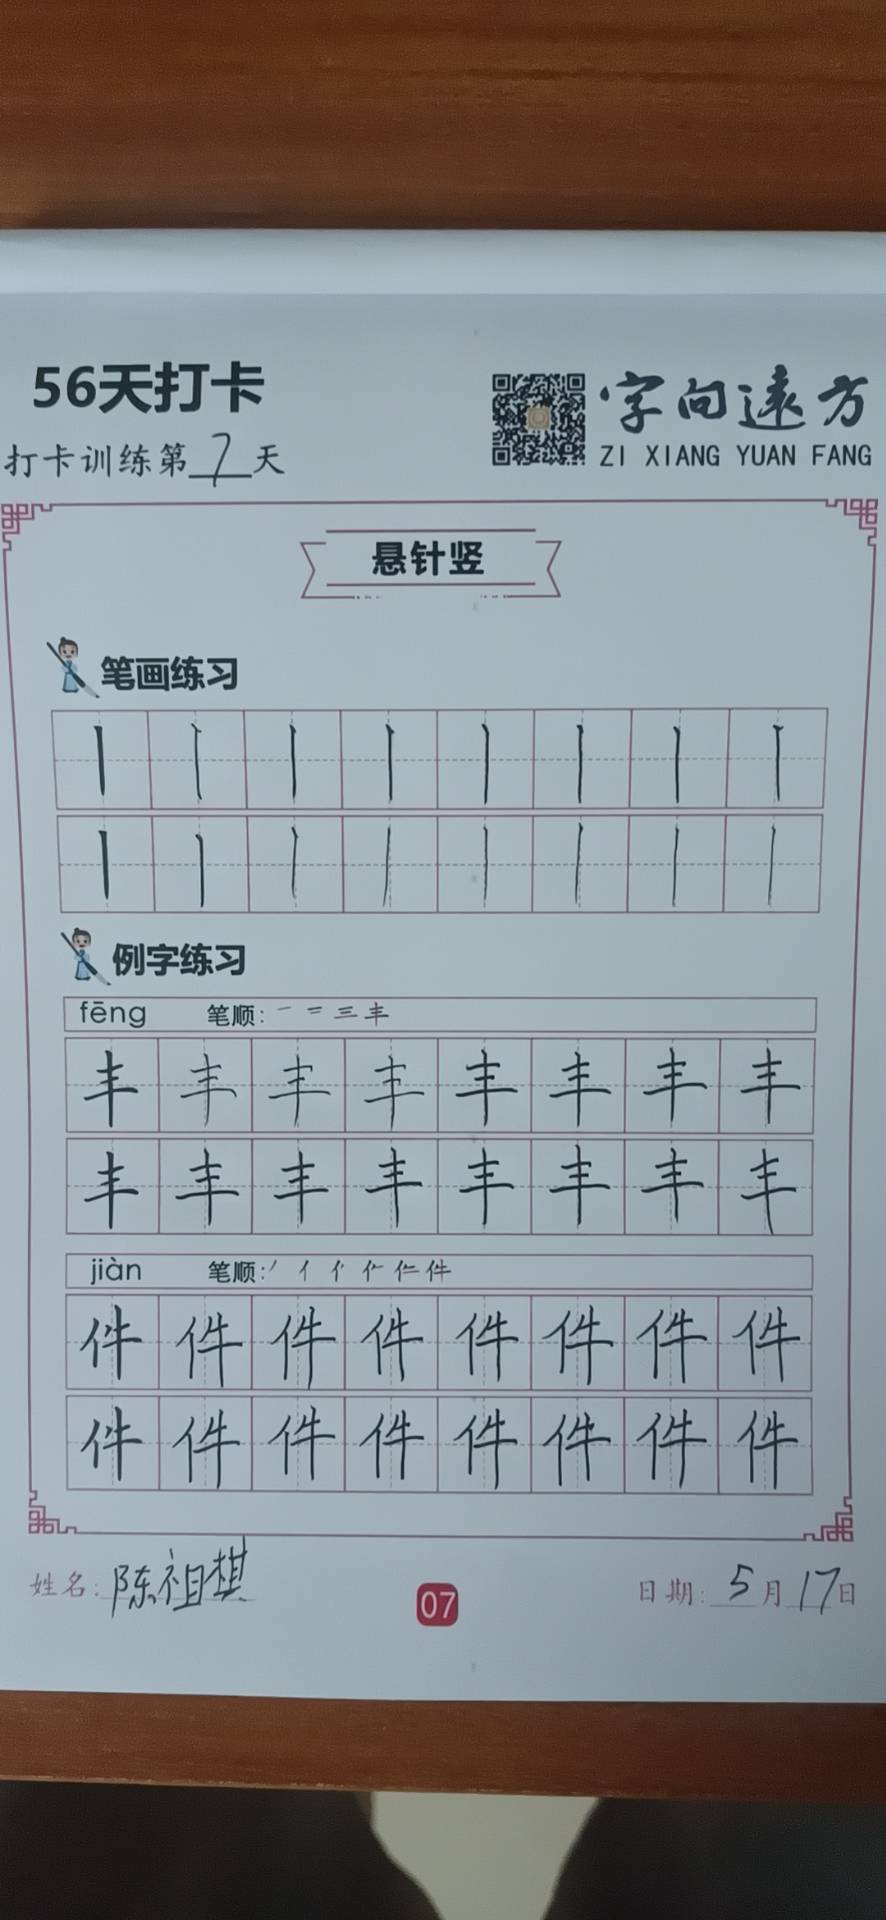 56天打卡
字向遠方
打卡训练第7天
ZI XIANG YUAN FANG
悬针竖
笔画练习
丨丨丨丨丨丨丨丨
丨丨丨丨丨丨丨丨
例字练习
fēng 笔顺: 一 二 三 丰
丰丰丰丰丰丰丰丰
丰丰丰丰丰丰丰丰
jiàn 笔顺: 件
件件件件件件件件
件件件件件件件件
姓名: 陈祖棋
07
日期: 5月17日